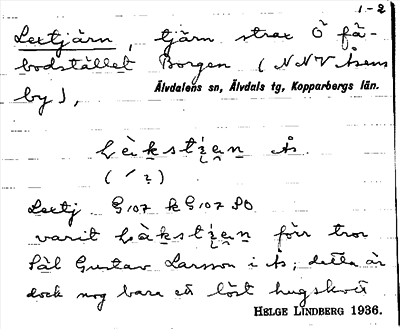 1-2
Lextjärn, tjärn strax Ö fä-
bodstället Borgen (NNV Åsens
by),
Älvdalens sn, Älvdals tg, Kopparbergs län.
Ås
Lextj G107 k G107 SO
varit förr tror
Pål Gustav Larsson i Ås; detta är
dock nog bara ett löst hugskott
HELGE LINDBERG 1936.